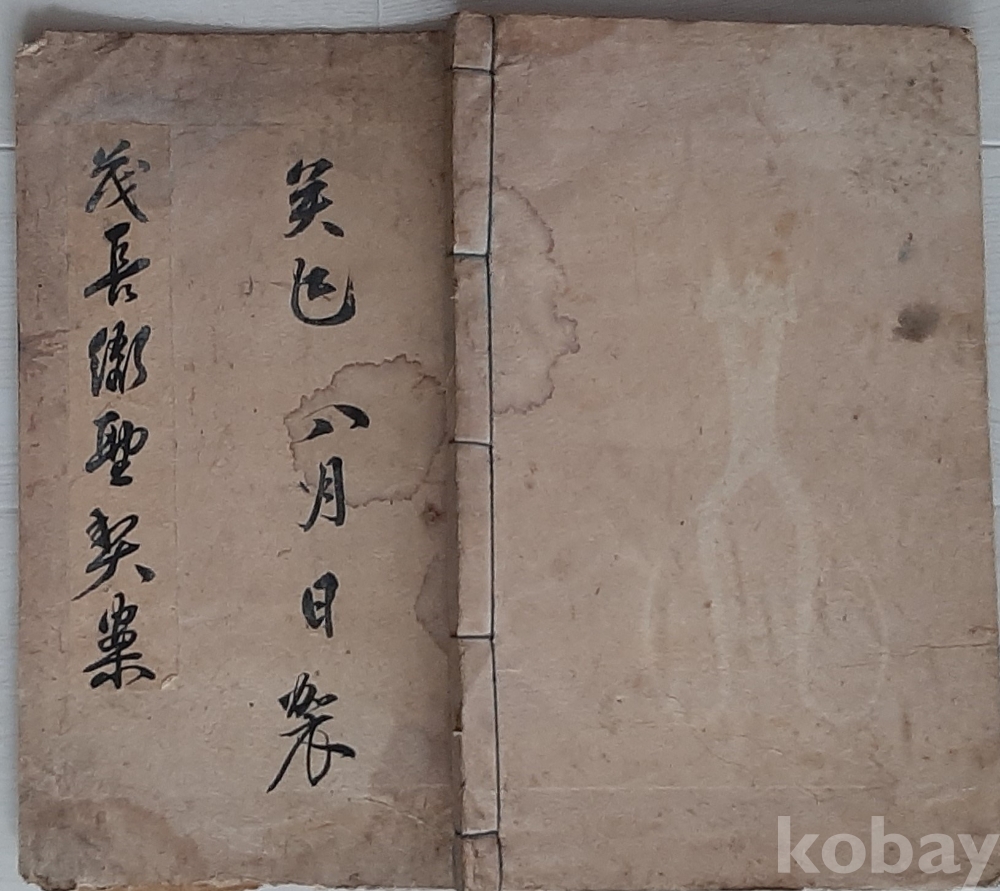 癸巳 八月 日
茂長衛聖契案
kobay